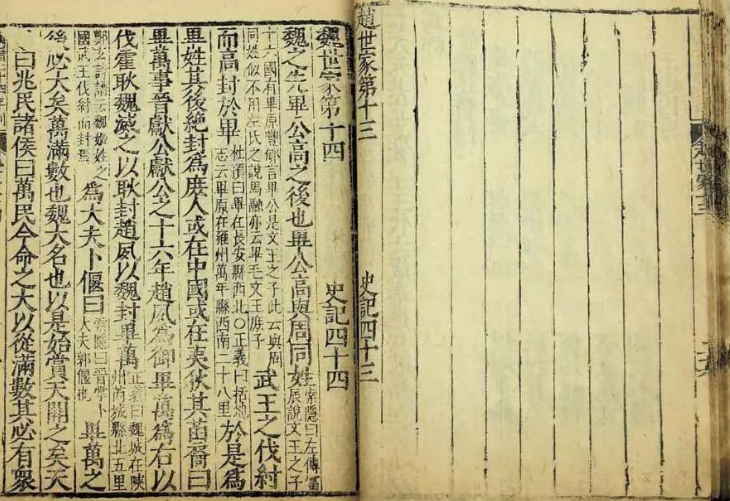 趙世家十三
趙世家第十三 史記四十三
魏世家第十四 史記四十四
魏之先畢公高之後也畢公高與周同姓索隱曰左傳富辰說文王之子
十六國有畢原豐郇言畢公是文王之子此云與周同姓似不用左氏之說馬融亦云畢毛文王庶子武王之伐紂
而高封於畢杜預曰畢在長安縣西北○正義曰括地志云畢原在雍州萬年縣西南二十八里於是爲
畢姓其後絕封爲庶人或在中國或在夷狄其苗裔曰
畢萬事晉獻公獻公之十六年趙夙爲御畢萬爲右以
伐霍耿魏滅之以耿封趙夙以魏封畢萬正義曰魏城在陝州芮城縣北五里
鄭玄詩譜云魏姬姓之國武王伐紂而封焉爲大夫卜偃曰索隱曰晉掌卜大夫郭偃也畢萬之
後必大矣萬滿數也魏大名也以是始賞天開之矣天
曰兆民諸侯曰萬民今命之大以從滿數其必有衆